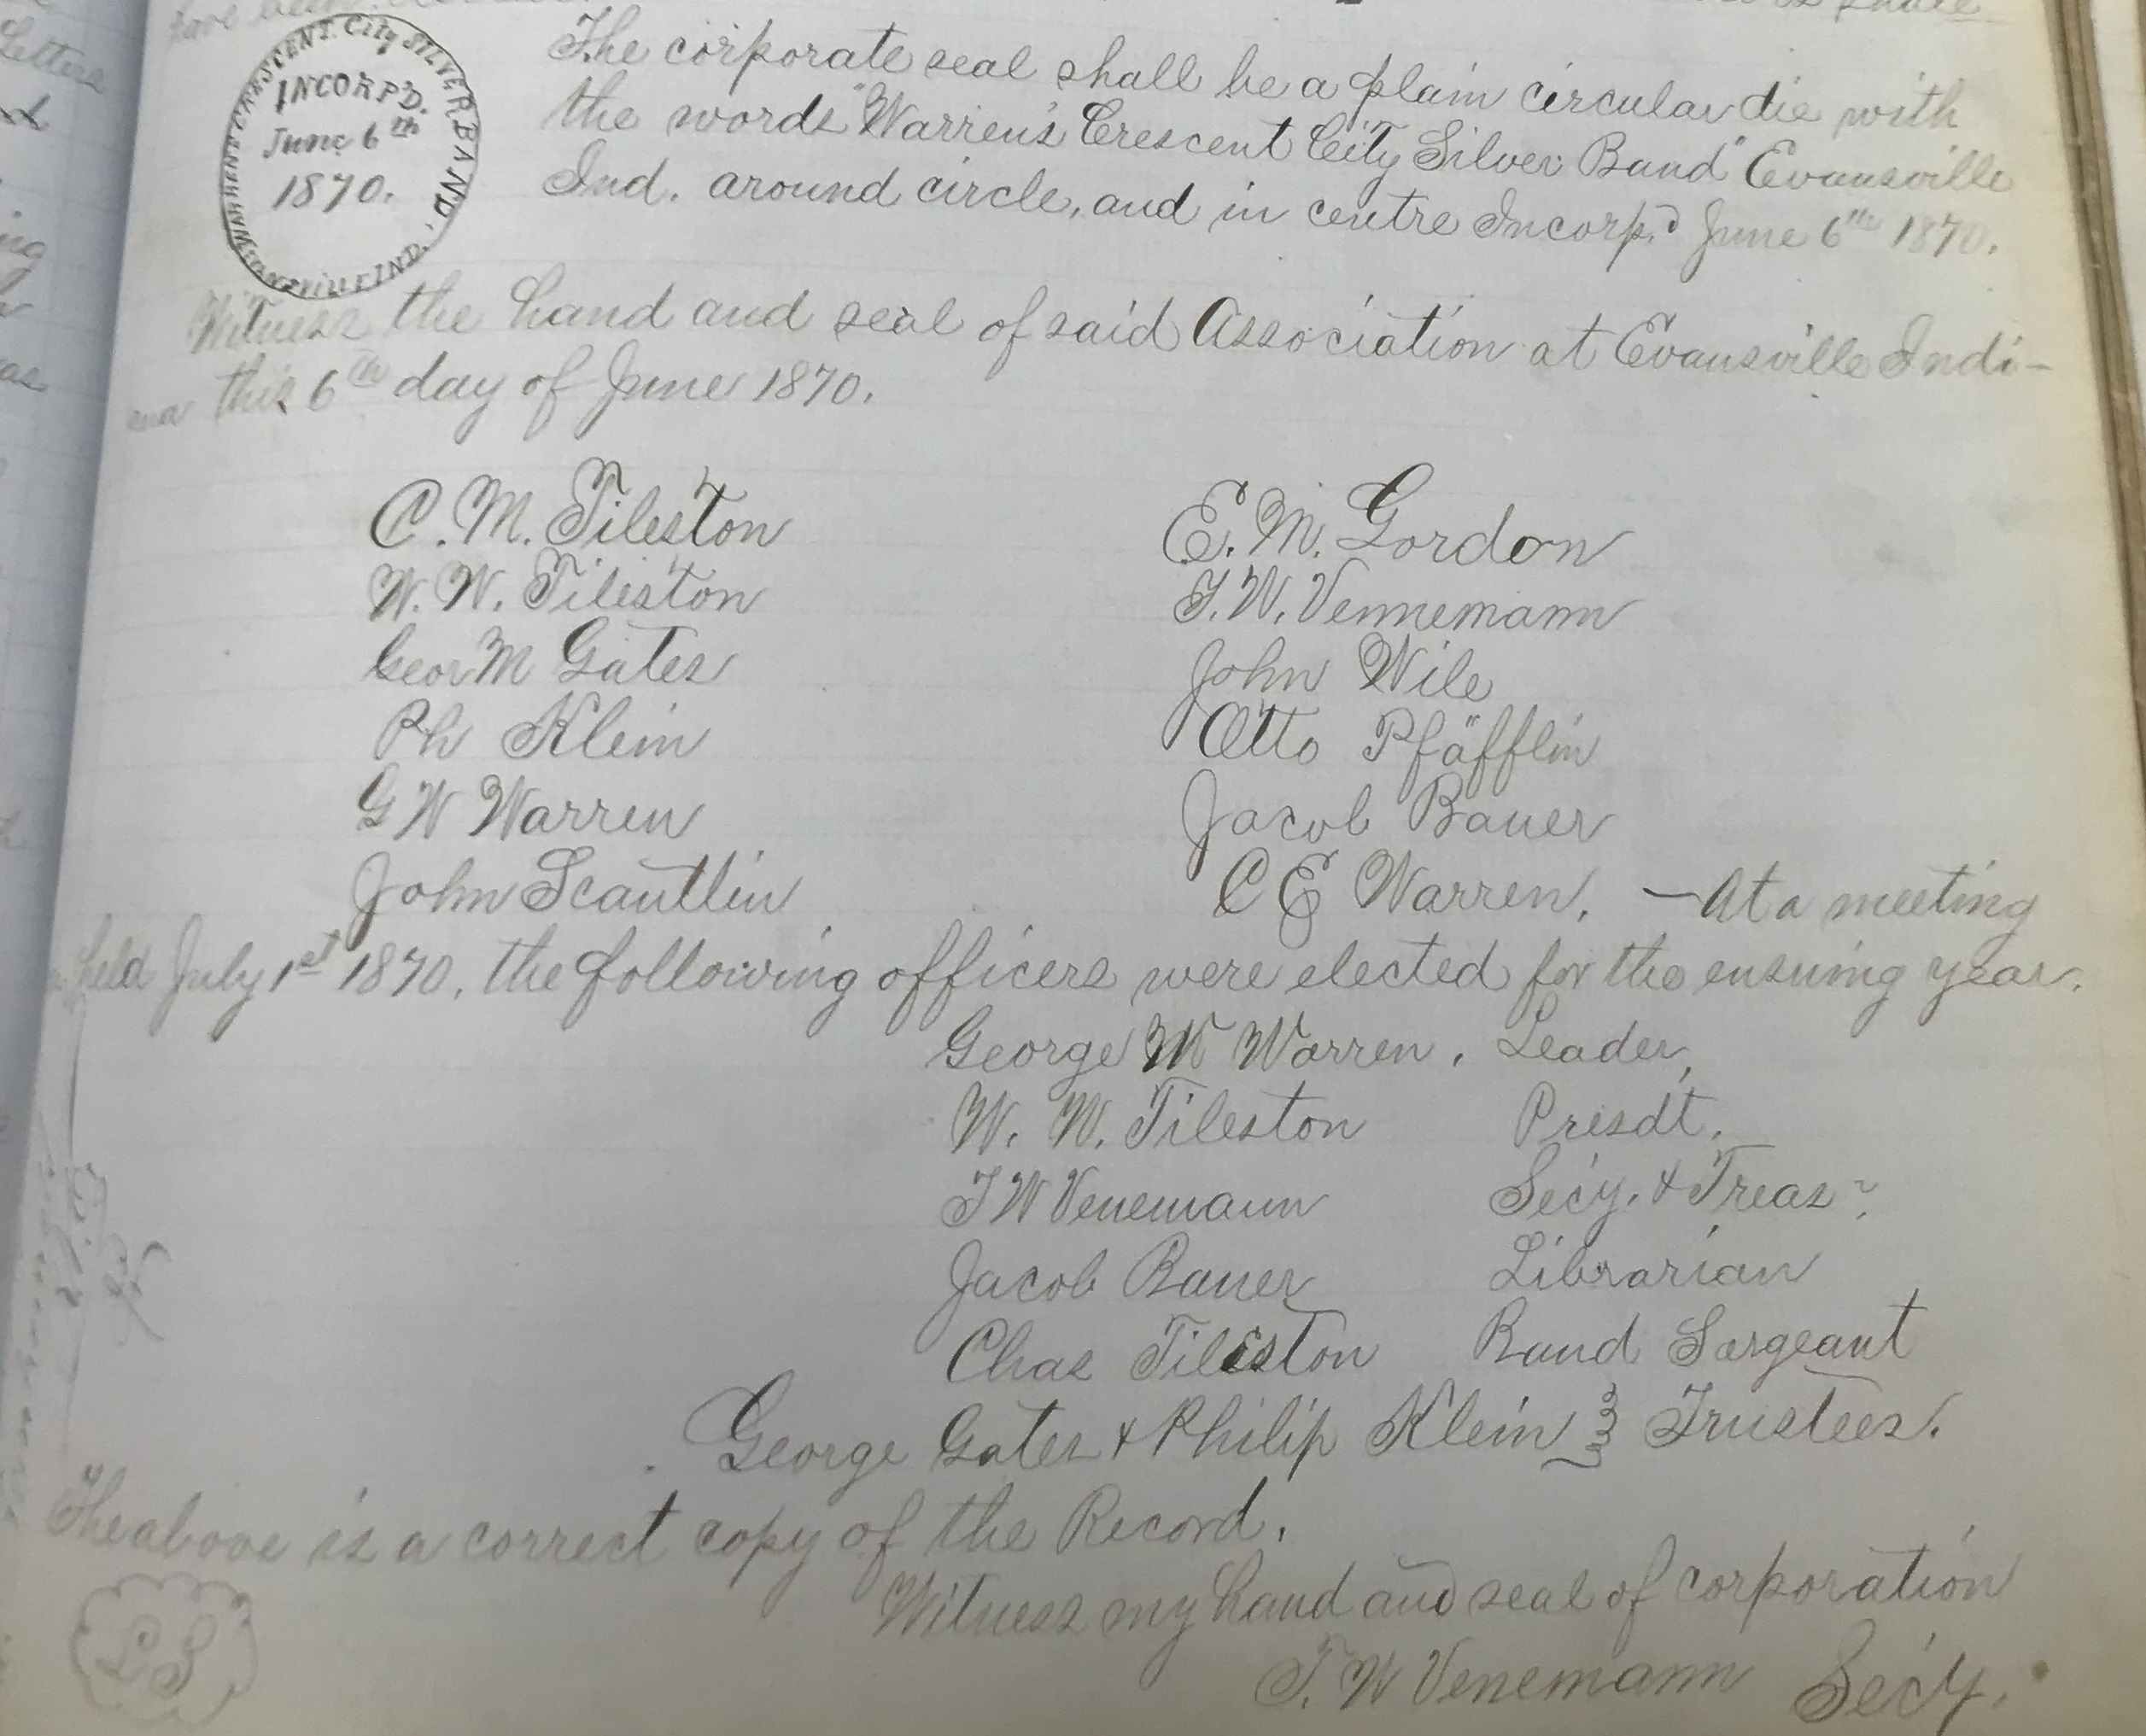 have been
shall
The corporate seal shall be a plain circular die with
the words "Warren's Crescent City Silver Band" Evansville
Ind. around circle, and in centre Incorp.d June 6th 1870.
WARREN'S CRESCENT City SILVER BAND,
EVANSVILLE IND.
INCORP'D.
June 6th
1870.
Witness the hand and seal of said Association at Evansville Indi-
ana this 6th day of June 1870.
C. M. Tileston
E. M. Gordon
W. W. Tileston
F. W. Vennemann
Geor M Gates
John Wile
Ph Klein
Otto Pfäfflin
G W Warren
Jacob Bauer
John Scantlin
C E Warren. — At a meeting
held July 1st 1870, the following officers were elected for the ensuing year.
George W Warren. Leader,
W. W. Tileston Presdt.
F W Venemann Secy. & Treas
Jacob Bauer Librarian
Chas Tileston Band Sergeant
George Gates & Philip Klein } Trustees.
The above is a correct copy of the Record.
Witness my hand and seal of corporation
LS
F. W Venemann Secy.